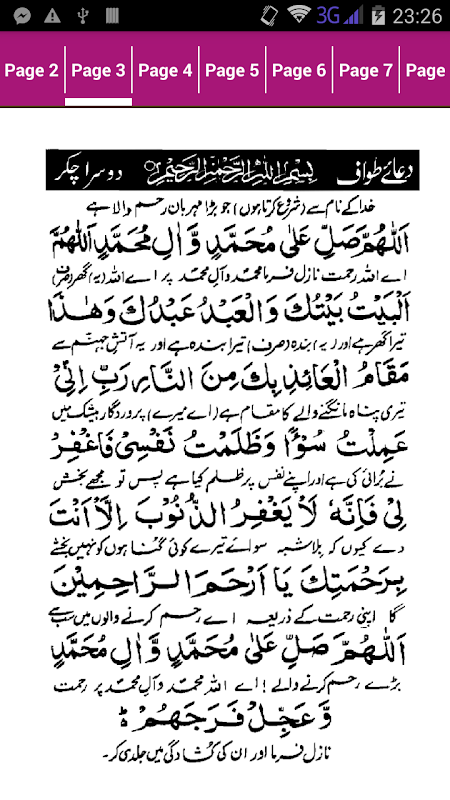 3G 23:26
Page 2 Page 3 Page 4 Page 5 Page 6 Page 7 Page
دعائے طواف بِسْمِ اللهِ الرَّحْمٰنِ الرَّحِيْمِ دوسرا چکر
خدا کے نام سے (شروع کرتا ہوں) جو بڑا مہربان رحم والا ہے
اَللّٰهُمَّ صَلِّ عَلٰى مُحَمَّدٍ وَّاٰلِ مُحَمَّدٍ اَللّٰهُمَّ
اے اللہ رحمت نازل فرما محمدؐ و آل محمدؐ پر اے اللہ (یہ) گھر (صرف)
اَلْبَيْتُ بَيْتُكَ وَالْعَبْدُ عَبْدُكَ وَهٰذَا
تیرا گھر ہے اور (یہ) بندہ (صرف) تیرا بندہ ہے اور یہ آتش جہنم سے
مَقَامُ الْعَائِذِ بِكَ مِنَ النَّارِ رَبِّ اِنِّىْ
تیری پناہ مانگنے والے کا مقام ہے (اے میرے) پروردگار بیشک میں
عَمِلْتُ سُوْٓءًا وَظَلَمْتُ نَفْسِىْ فَاغْفِرْ
نے برائی کی ہے اور اپنے نفس پر ظلم کیا ہے پس تو مجھے بخش
لِىْ فَاِنَّهٗ لَا يَغْفِرُ الذُّنُوْبَ اِلَّا اَنْتَ
دے کیوں کہ بلاشبہ سوائے تیرے کوئی گناہوں کو نہیں بخشے
بِرَحْمَتِكَ يَا اَرْحَمَ الرَّاحِمِيْنَ
گا اپنی رحمت کے ذریعہ اے رحم کرنے والوں میں سب سے
اَللّٰهُمَّ صَلِّ عَلٰى مُحَمَّدٍ وَّاٰلِ مُحَمَّدٍ
بڑے رحم کرنے والے! اے اللہ محمدؐ و آل محمدؐ پر رحمت
وَّعَجِّلْ فَرَجَهُمْ ط
نازل فرما اور ان کی کشادگی میں جلدی کر۔